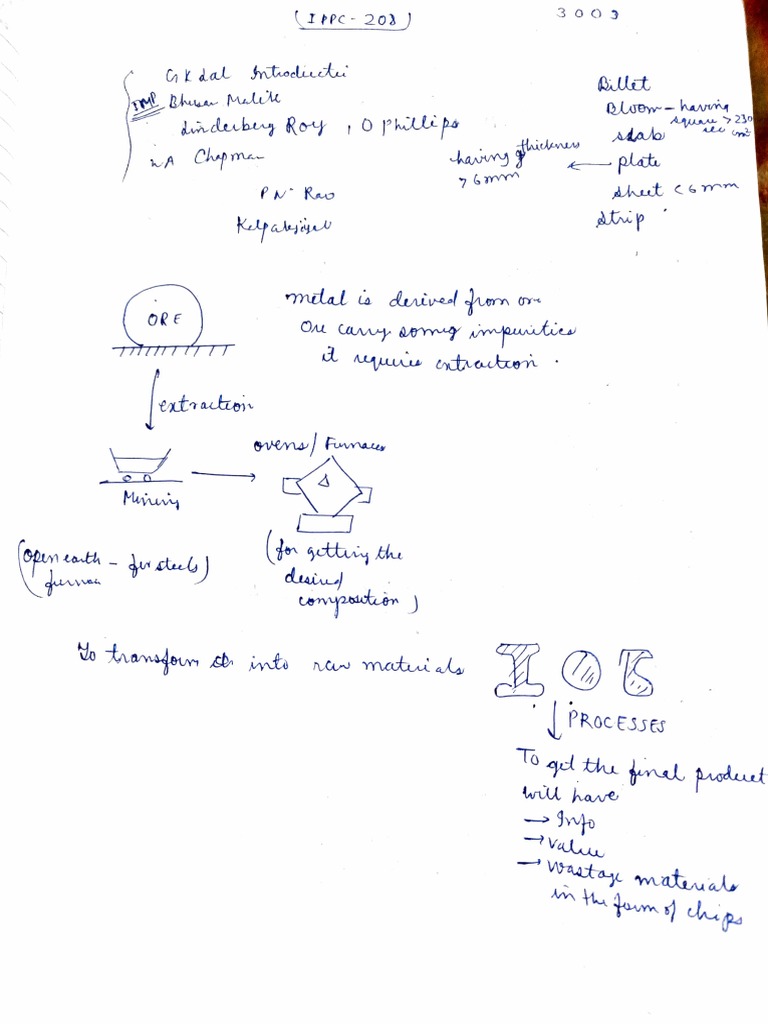 (IPPC-208)
3003
G K Lal Introductin
IMP Bhusan Malik
Linderberg Roy, O Phillips
W A Chapman
P N. Rao
Kalpakjian
Billet
Bloom - having
square > 230
sec cm²
slab
having thickness
> 6mm
← plate
sheet < 6mm
strip
ORE
metal is derived from ore
Ore carry some impurities
it requires extraction.
extraction
ovens/Furnaces
Mining
(open earth - for steels)
furnace
(for getting the
desired
composition)
To transform into raw materials
PROCESSES
To get the final product
will have
→ Info
→ value
→ wastage materials
in the form of chips